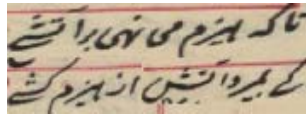 تا که هیزم می نهی بر آتشے
کے بمیرد آتش از هیزم کشے